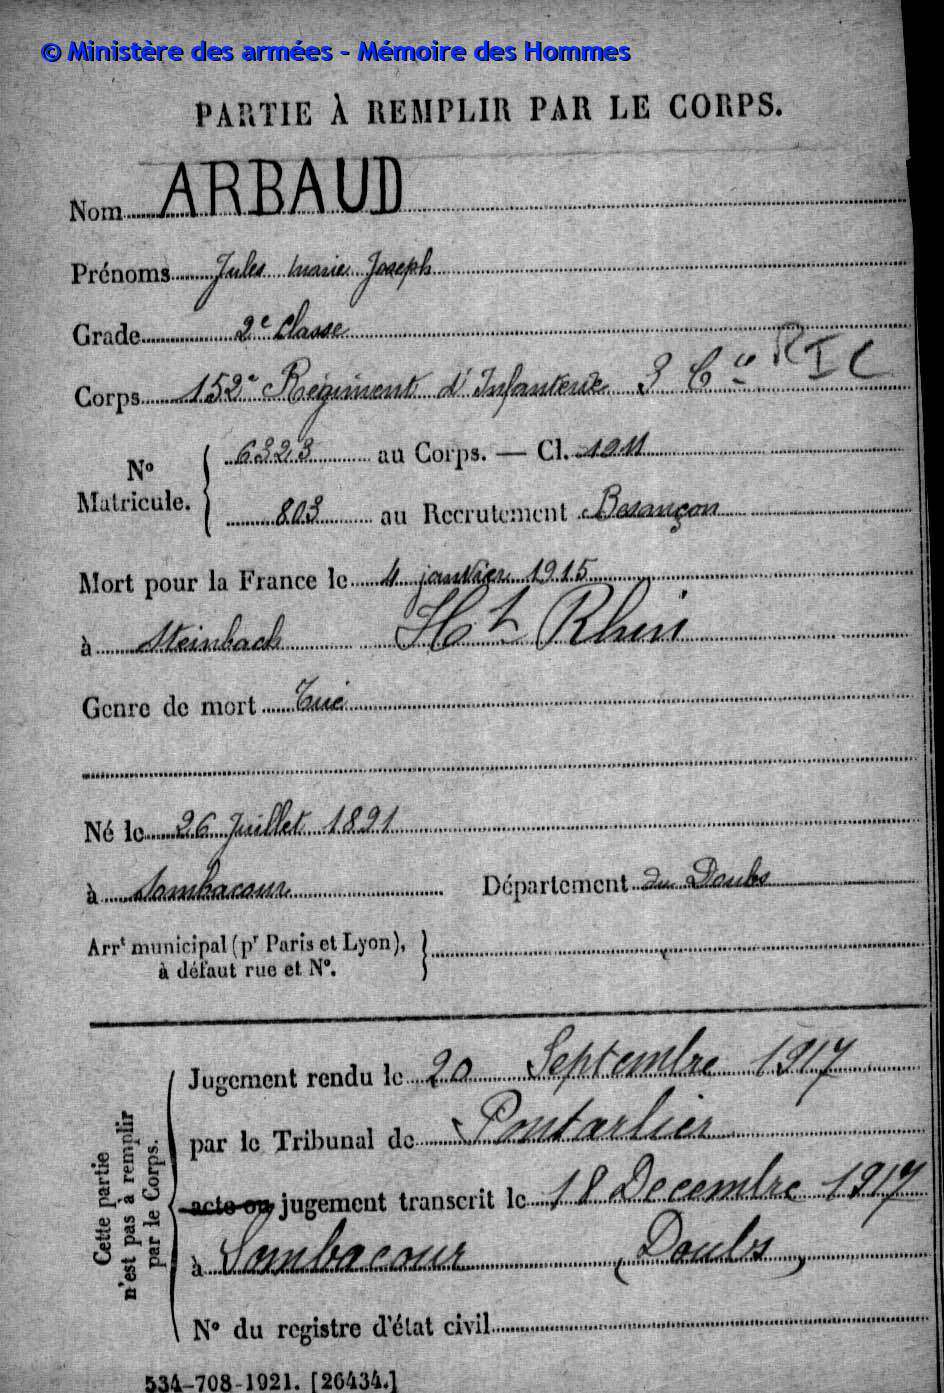 © Ministère des armées - Mémoire des Hommes
PARTIE À REMPLIR PAR LE CORPS.
Nom ARBAUD
Prénoms Jules Marie Joseph
Grade 2e Classe
Corps 152e Régiment d'Infanterie 3 Cie RIC
No Matricule. 6323 au Corps. — Cl. 1911
803 au Recrutement Besançon
Mort pour la France le 4 janvier 1915
à Steinbach Ht Rhin
Genre de mort Tué
Né le 26 Juillet 1891
à Sombacour Département du Doubs
Arrt municipal (pr Paris et Lyon),
à défaut rue et No.
Cette partie
n'est pas à remplir
par le Corps.
Jugement rendu le 20 Septembre 1917
par le Tribunal de Pontarlier
acte ou jugement transcrit le 18 Decembre 1917
à Sombacour (Doubs)
No du registre d'état civil
534-708-1921. [26434.]